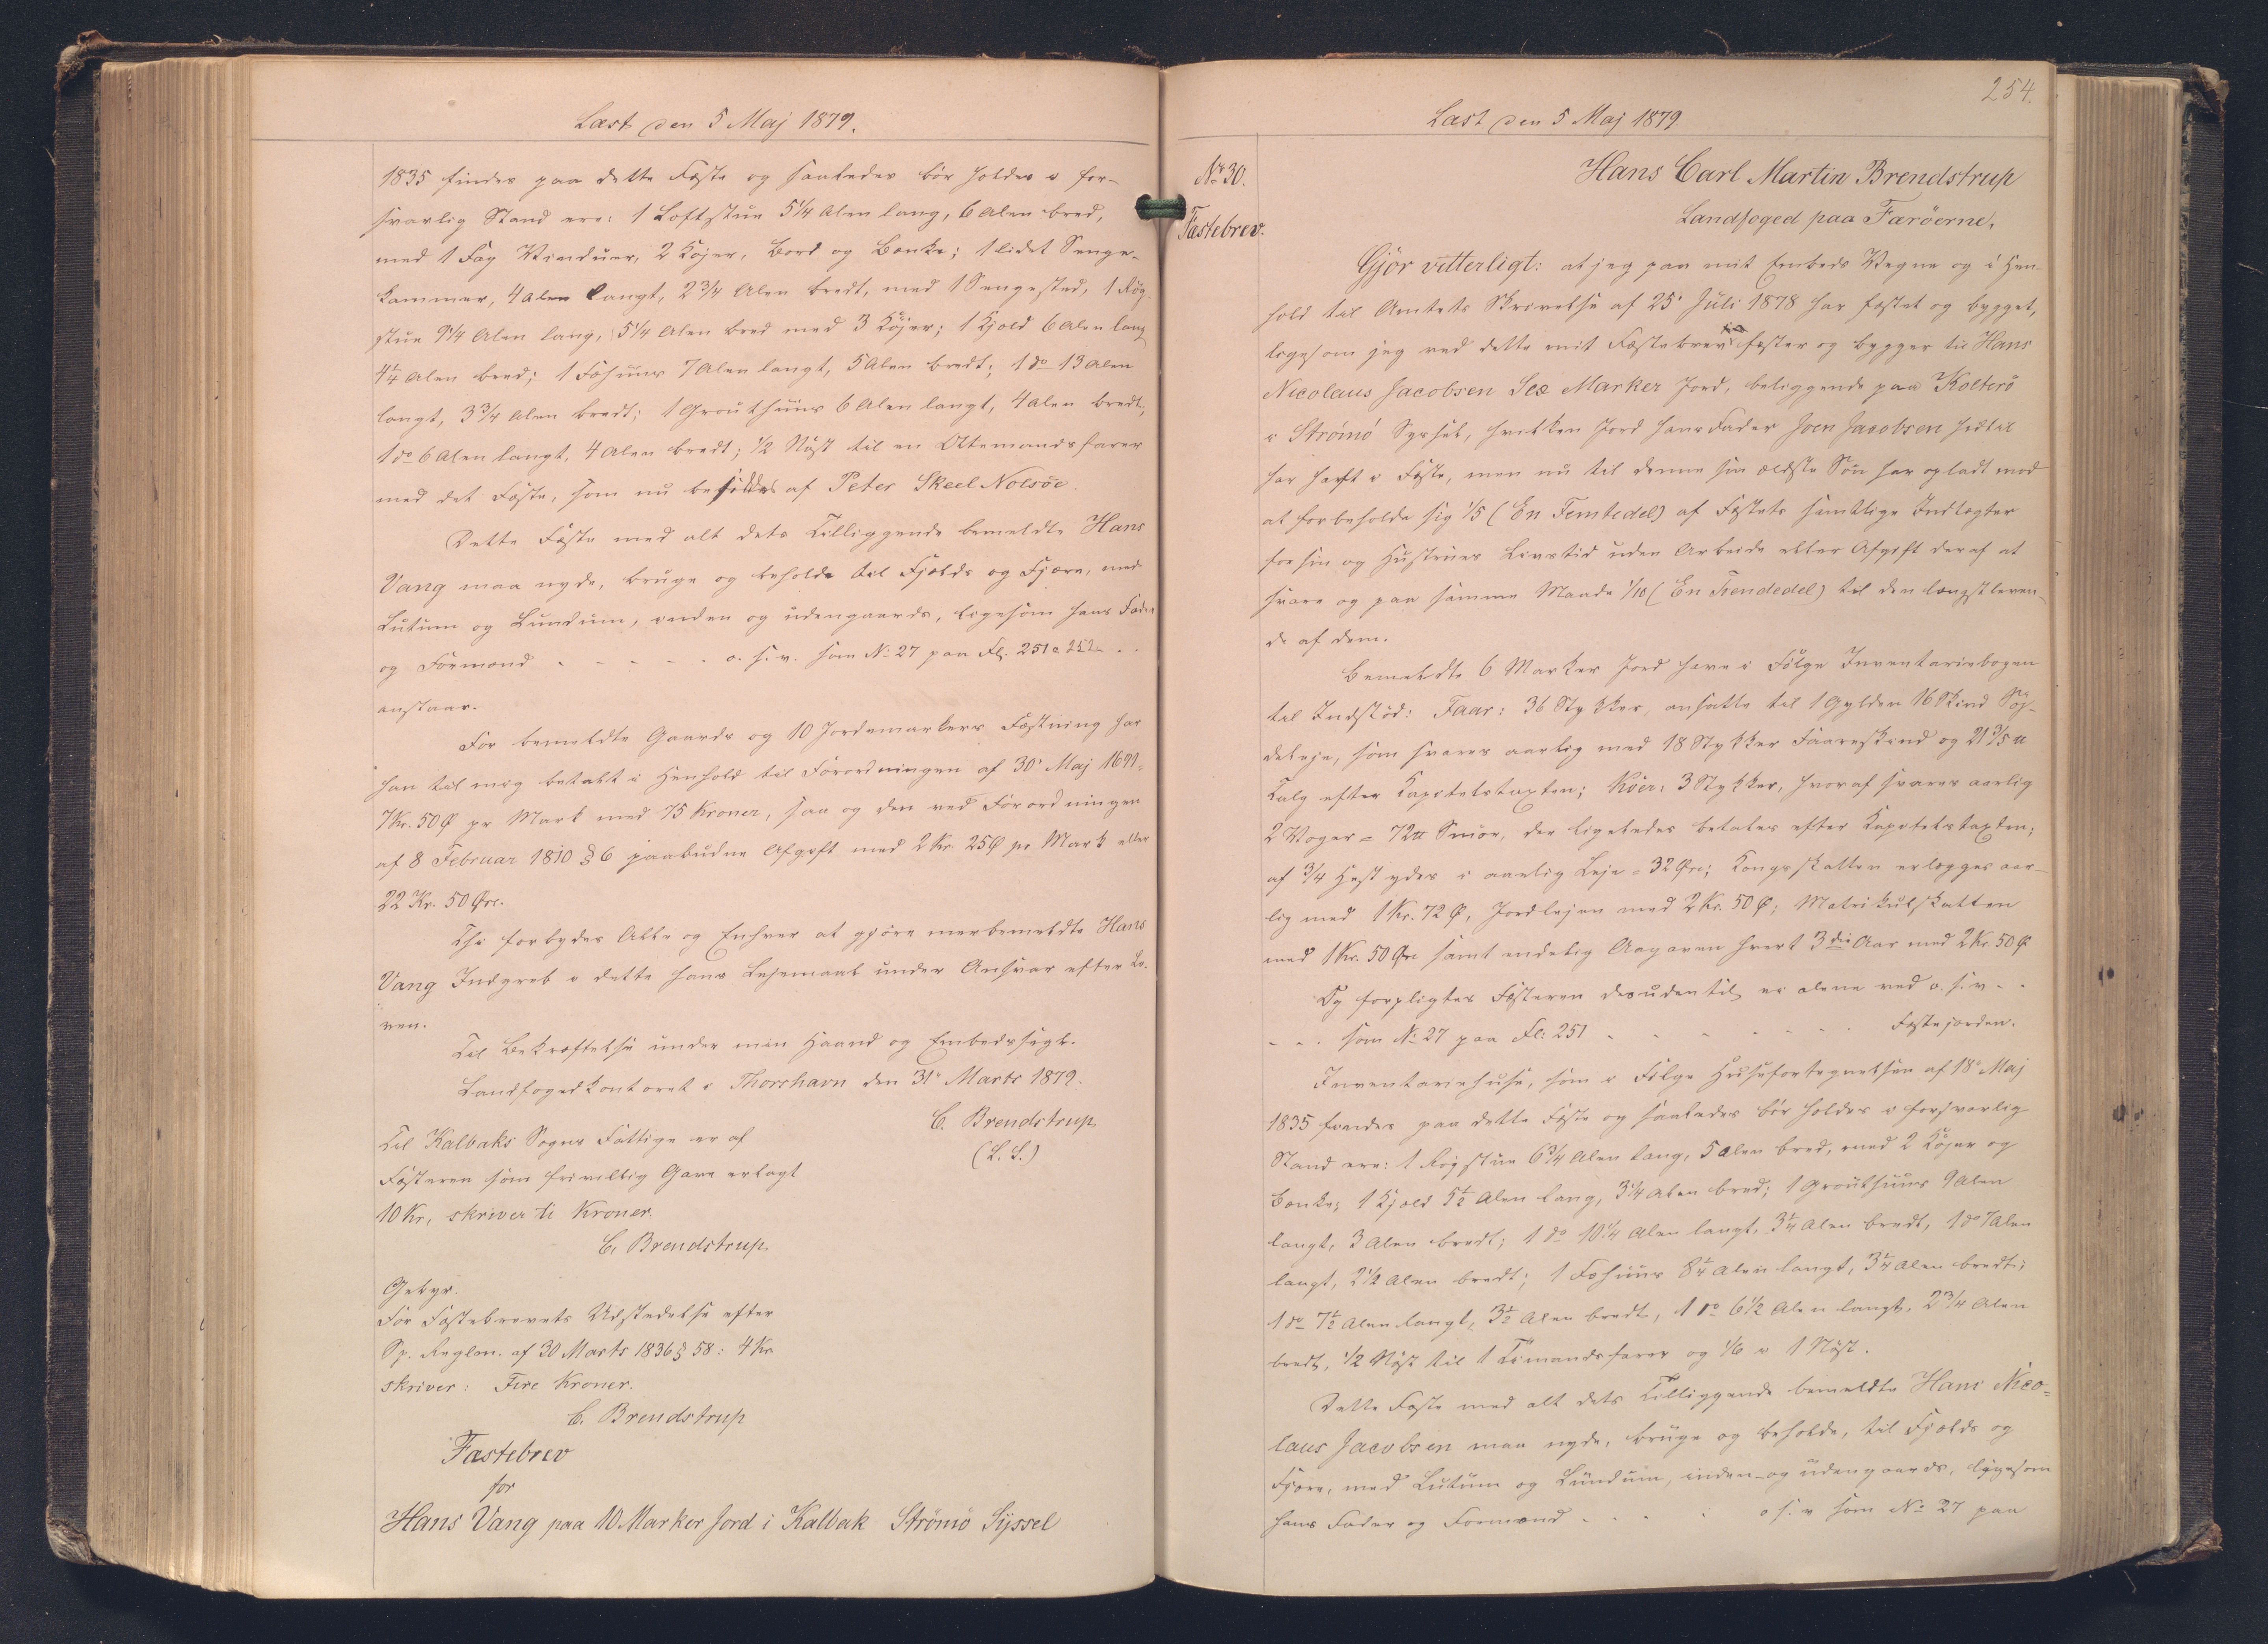 Læst den 5 Maj 1879.
1835 findes paa dette Fæste og saaledes bør holdes i for-
svarlig Stand ere: 1 Loftstue 5 1/4 Alen lang, 6 Alen bred,
med 1 Fag Vinduer, 2 Køjer, Bord og Bænke; 1 lidet Senge-
kammer, 4 Alen langt, 2 3/4 Alen bredt, med 1 Sengested, 1 Røg-
stue 9 1/4 Alen lang, 5 1/4 Alen bred med 3 Køjer; 1 Hjald 6 Alen lang
4 1/4 Alen bred; 1 Fæhuus 7 Alen langt, 5 Alen bredt; 1 do 13 Alen
langt, 3 3/4 Alen bredt; 1 Grouthuus 6 Alen langt, 4 Alen bredt,
1 do 6 Alen langt, 4 Alen bredt; 1/2 Nøst til en Ottemandsfarer
med det Fæste, som nu besiddes af Peter Skeel Nolsöe.
Dette Fæste med alt dets Tilliggende bemeldte Hans
Vang maa nyde, bruge og beholde til Fjelds og Fjære, med
Lutum og Lundum, inden og udengaards, ligesom hans Fader
og Formænd - - - - - o.s.v. som No 27 paa Fl. 251 a 252 - -
anstaar.
For bemeldte Gaards og 10 Jordemarkers Fæstning har
han til mig betalt i Henhold til Forordningen af 30' Maj 1691.
7 Kr. 50 Ø pr Mark med 75 Kroner, saa og den ved Forordningen
af 8 Februar 1810 § 6 paabudne Afgift med 2 Kr. 25 Ø pr Mark eller
22 Kr. 50 Øre.
Thi forbydes Alle og Enhver at gjøre merbemeldte Hans
Vang Indgreb i dette hans Lejemaal under Ansvar efter Lo-
ven.
Til Bekræftelse under min Haand og Embedssegl.
Landfogedkontoret i Thorshavn den 31' Marts 1879.
C. Brendstrup
(L. S.)
Til Kalbaks Sogns Fattige er af
Fæsteren som frivillig Gave erlagt
10 Kr, skriver ti Kroner
C. Brendstrup
Gebyr.
For Fæstebrevets Udstedelse efter
Sp. Reglm. af 30 Marts 1836 § 58: 4 Kr
skriver: Fire Kroner.
C. Brendstrup
Fæstebrev
for
Hans Vang paa 10 Marker Jord i Kalbak Strömö Syssel
254.
Læst den 5 Maj 1879
No 30.
Fæstebrev.
Hans Carl Martin Brendstrup
Landfoged paa Færöerne,
Gjör vitterligt: at jeg paa mit Embeds Vegne og i Hen-
hold til Amtets Skrivelse af 25' Juli 1878 har fæstet og bygget,
ligesom jeg ved dette mit Fæstebrev fæster og bygger til Hans
Nicolaus Jacobsen Sex Marker Jord, beliggende paa Kolterö
i Strömö Syssel, hvilken Jord hans Fader Joen Jacobsen hidtil
har havt i Fæste, men nu til denne sin ældste Søn har opladt mod
at forbeholde sig 1/5 (En Femtedel) af Fæstets samtlige Indtægter
for sin og Hustrues Livstid uden Arbeide eller Afgift deraf at
svare og paa samme Maade 1/10 (En Tiendedel) til den længstleven-
de af dem.
Bemeldte 6 Marker Jord have i Følge Inventariebogen
til Indstød: Faar: 36 Stykker, ansatte til 1 Gylden 16 Skind Søj-
deleje, som svares aarlig med 18 Stykker Faareskind og 21 3/5 ℔
Talg efter Kapitelstaxten; Köer: 3 Stykker, hvoraf svares aarlig
2 Voger = 72 ℔ Smör, der ligeledes betales efter Kapitelstaxten;
af 3/4 Hest ydes i aarlig Leje = 32 Øre; Kongsskatten erlægges aar-
lig med 1 Kr. 72 Ø, Jordlejen med 2 Kr. 50 Ø; Matrikulskatten
med 1 Kr. 50 Øre samt endelig Aagaven hvert 3die Aar med 2 Kr. 50 Ø
Og forpligtes Fæsteren desudentil, ei alene ved o.s.v. - -
- - . som No 27 paa Fl: 251 - - - - - - Fæstejorden.
Inventariehuse, som i Følge Husefortegnelsen af 18' Maj
1835 findes paa dette Fæste og saaledes bør holdes i forsvarlig
Stand ere: 1 Røgstue 6 3/4 Alen lang, 5 Alen bred, med 2 Køjer og
Bænke; 1 Hjald 5 1/2 Alen lang, 3 1/4 Alen bred; 1 Grouthuus 9 Alen
langt, 3 Alen bredt; 1 do 10 1/4 Alen langt, 3 1/4 Alen bredt, 1 do 7 Alen
langt, 2 1/2 Alen bredt; 1 Fæhuus 8 1/4 Alen langt, 3 1/4 Alen bredt;
1 do 7 1/2 Alen langt, 3 1/2 Alen bredt, 1 do 6 1/2 Alen langt, 2 3/4 Alen
bredt, 1/2 Nøst til 1 Timandsfarer og 1/6 i 1 Nøst.
Dette Fæste med alt dets Tilliggende bemeldte Hans Nico=
laus Jacobsen maa nyde, bruge og beholde, til Fjelds og
Fjære, med Lutum og Lundum, inden- og udengaards, ligesom
hans Fader og Formænd - - - - o.s.v som No 27 paa